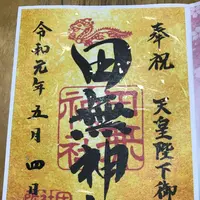 奉祝
天皇陛下御
田無神
令和元年五月四日